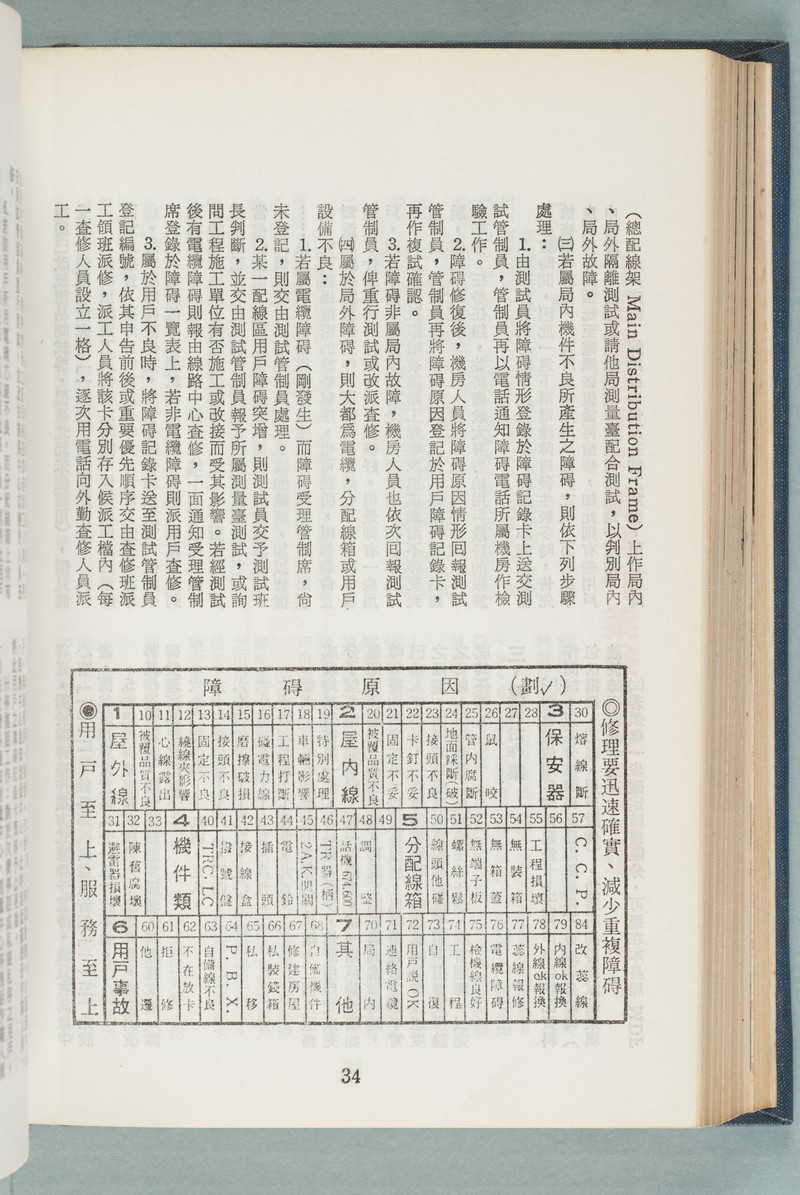 （總配線架 Main Distribution Frame）上作局內
、局外隔離測試或請他局測量臺配合測試，以判別局內
、局外故障。
㈢若屬局內機件不良所產生之障碍，則依下列步驟
處理：
1.由測試員將障碍情形登錄於障碍記錄卡上送交測
試管制員，管制員再以電話通知障碍電話所屬機房作檢
驗工作。
2.障碍修復後，機房人員將障碍原因情形回報測試
管制員，管制員再將障碍原因登記於用戶障碍記錄卡，
再作複試確認。
3.若障碍非屬局內故障，機房人員也依次回報測試
管制員，俾重行測試或改派查修。
㈣屬於局外障碍，則大都爲電纜，分配線箱或用戶
設備不良：
1.若屬電纜障碍（剛發生）而障碍受理管制席，尙
未登記，則交由測試管制員處理。
2.某一配線區用戶障碍突增，則測試員交予測試班
長判斷，並交由測試管制員報予所屬測量臺測試，或詢
問工程施工單位有否施工或改接而受其影響。若經測試
後有電纜障碍則報由線路中心查修，一面通知受理管制
席登錄於障碍一覽表上，若非電纜障碍則派用戶查修。
3.屬於用戶不良時，將障碍記錄卡送至測試管制員
登記編號，依其申告前後或重要優先順序交由查修班派
工領班派修，派工人員將該卡分別存入候派工檔內（每
一查修人員設立一格），逐次用電話向外勤查修人員派
工。
◎修理要迅速確實、減少重複障碍
障碍原因（劃✓）
1 屋外線
10 被覆品質不良
11 心線露出
12 繞線夾影響
13 固定不良
14 接頭不良
15 磨擦破損
16 碰電力線
17 工程打斷
18 車輛影響
19 特別處理
2 屋內線
20 被覆品質不良
21 固定不妥
22 卡釘不妥
23 接頭不良
24 地面踩斷(破)
25 管內腐斷
26 鼠咬
27
28
3 保安器
30 熔線斷
31 避雷器損壞
32 陳舊腐壞
33
4 機件類
40 TRC. LC
41 撥號盤
42 接線盒
43 插頭
44 電鈴
45 2A.K.開關
46 TR器(柄)
47 話機 674.600
48 調整
49
5 分配線箱
50 線頭他碰
51 螺絲鬆
52 無端子板
53 無箱蓋
54 無裝箱
55 工程損壞
56
57 C. C. P.
6 用戶事故
60 他遷
61 拒修
62 不在放卡
63 自備線不良
64 P. B. X.
65 私移
66 私裝錢箱
67 修建房屋
68 自備機件
7 其他
70 局內
71 連絡電纜
72 用戶說OK
73 自復
74 工程
75 檢機線良好
76 電纜障碍
77 蕊線報修
78 外線ok報換
79 內線ok報換
84 改蕊線
◉用戶至上、服務至上
34